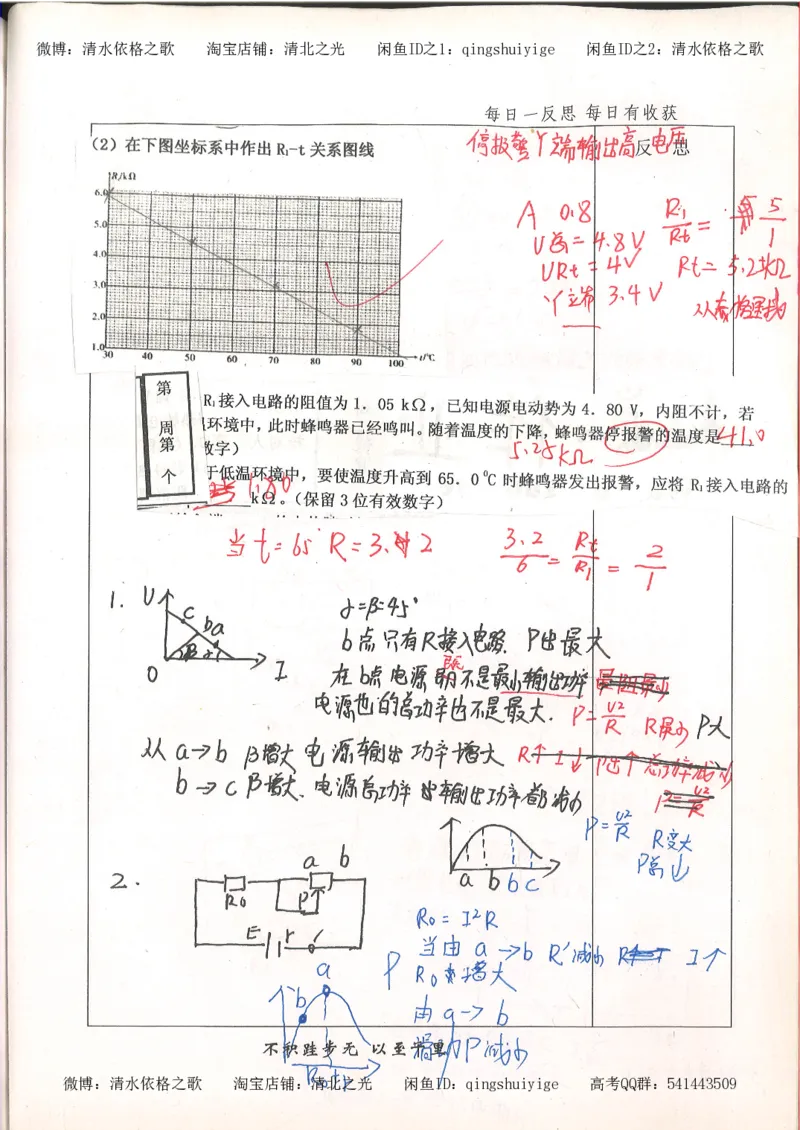 微博：清水依格之歌 淘宝店铺：清北之光 闲鱼ID之1：qingshuiyige 闲鱼ID之2：清水依格之歌
每日一反思 每日有收获
（2）在下图坐标系中作出 R₁-t 关系图线
停报警 丫端输出高电压
反 思
R/kΩ
6.0
5.0
4.0
3.0
2.0
1.0
30 40 50 60 70 80 90 100 t/℃
A 0.8
U总=4.8V
URt=4V
丫端 3.4V
R₁/Rt= 5/1
Rt=5.2kΩ
第
周
第
个
R₁接入电路的阻值为 1．05 kΩ，已知电源电动势为 4．80 V，内阻不计，若
环境中，此时蜂鸣器已经鸣叫。随着温度的下降，蜂鸣器停报警的温度是 41.0
数字）
5.25kΩ
于低温环境中，要使温度升高到 65．0 ⁰C 时蜂鸣器发出报警，应将 R₁接入电路的
1.60 kΩ。（保留 3 位有效数字）
当 t=65° R=3.2
3.2/6 = Rt/R₁ = 2/1
1. U c b a β α O I
α=β=45°
b点只有R接入电路. P出最大
在b点电源既不是最小输出功率
电源也的总功率也不是最大. P=U²/R R最小 P大
从 a→b β增大 电源输出功率增大 R↑ I↓ P出↑
b→c β增大. 电源总功率 输出功率都减小
P=U²/R R变大
P总↓
a b b c
2. a b
R₀ P
E r
R₀=I²R
当由 a→b R'减小 I↑
P R₀ 增大
a
b
由 a→b
P减小
不积跬步无 以至千里
微博：清水依格之歌 淘宝店铺：清北之光 闲鱼ID：qingshuiyige 高考QQ群：541443509